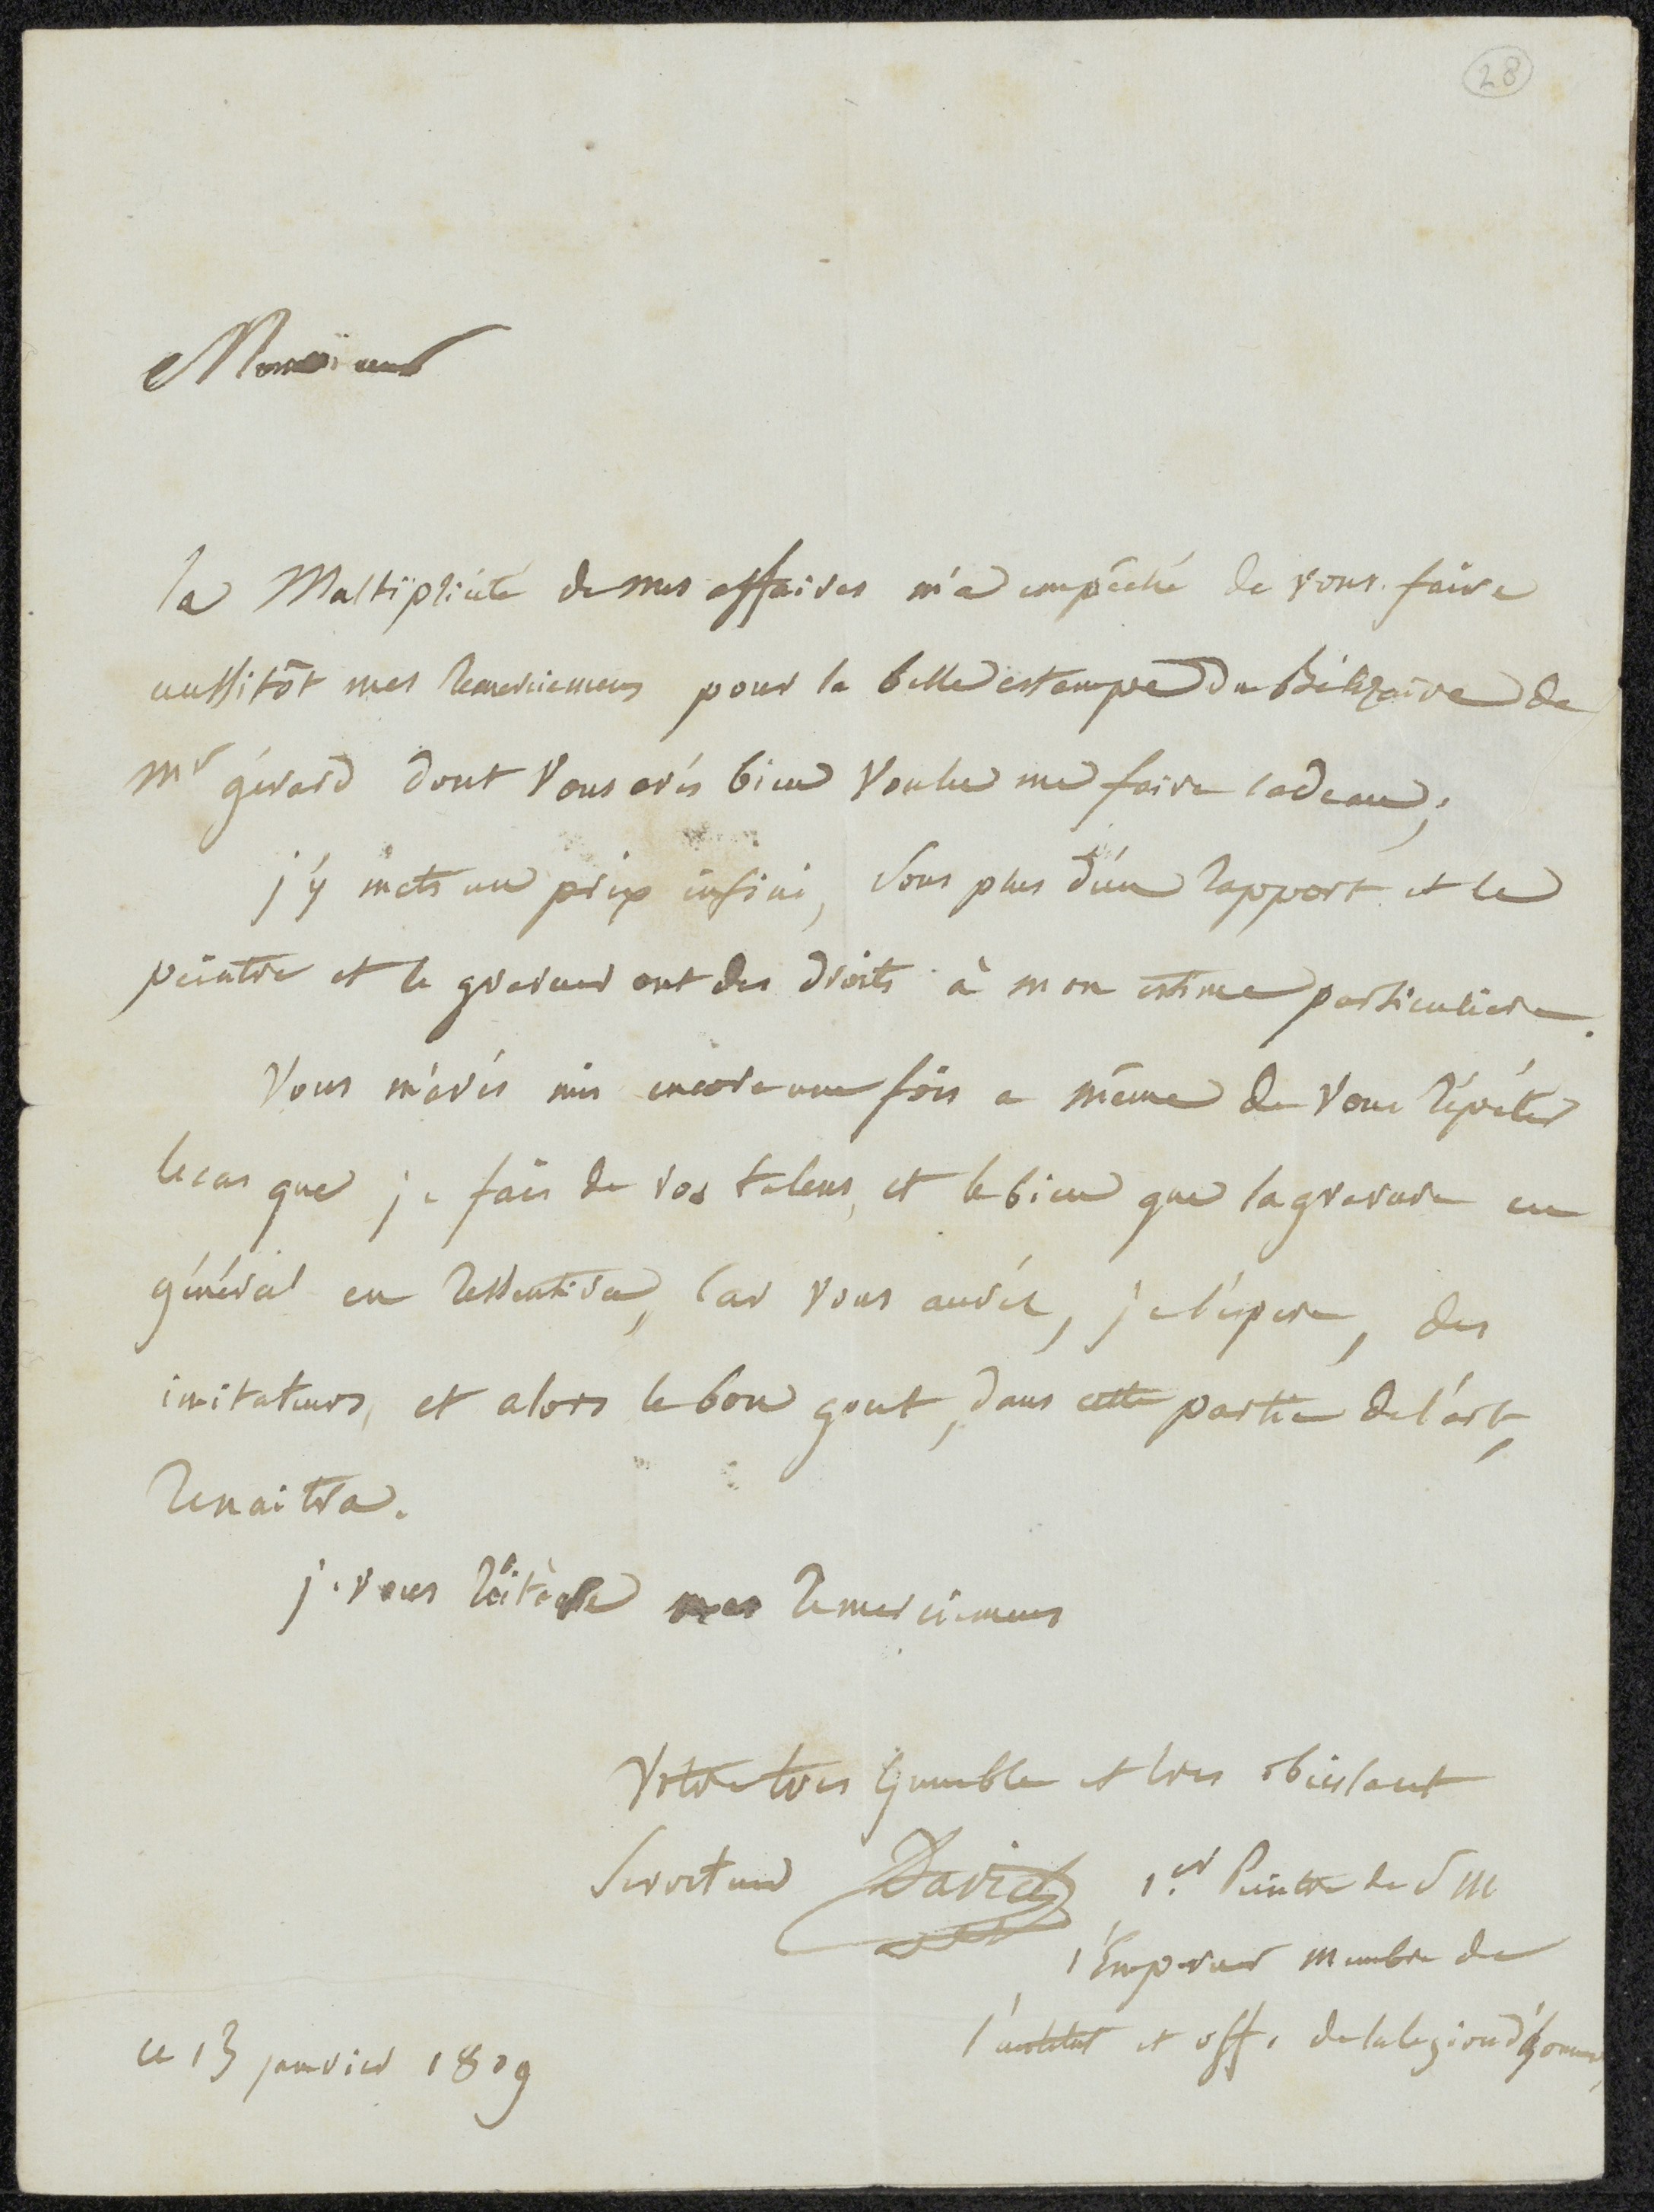 28
Monsieur
la Multiplicité de mes affaires m'a empêché de vous faire
aussitôt mes remerciemens pour la belle estampe du Bélizaire de
Mr gérard dont vous avés bien voulu me faire cadeau;
j'y mets un prix infini, sous plus d'un rapport et le
peintre et le graveur ont des droits à mon estime particuliere.
Vous m'avés mis encore une fois a même de vous répéter
le cas que je fais de vos talens, et le bien que la gravure en
général en ressentira, car vous aurés, je l'espere, des
imitateurs, et alors le bon gout, dans cette partie de l'art,
renaitra.
je vous réitère mes remerciemens
Votre tres humble et tres obéissant
Serviteur David 1.er Peintre de S M
l'Empereur membre de
l'institut et off. de la legion d'honneur,
ce 13 janvier 1809